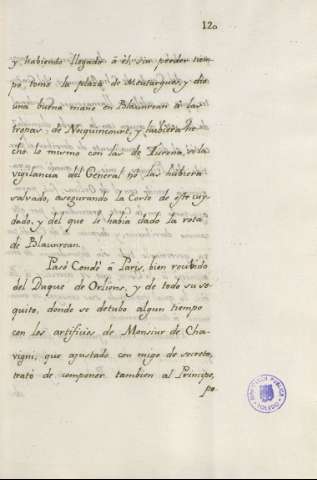 120
y habiendo llegado á él, sin perder tiem-
po, tomó la plaza de Montargis, y dio
una buena mano en Blaunean á las
tropas, de Noquincourt, y hubiera he-
cho lo mismo con las de Turena, si la
vigilancia del General no las hubiera
salvado, asegurando la Corte de este cuy-
dado, y del que se habia dado la rota
de Blaunean.
Pasó Condé á Paris, bien recibido
del Duque de Orliens, y de todo su se-
quito, donde se detubo algun tiempo
con los artificios de Monsiur de Cha-
vigni, que ajustado con migo de secreto,
trató de componer tambien al Principe,
po-
BIBLIOTECA PUBLICA
TOLEDO